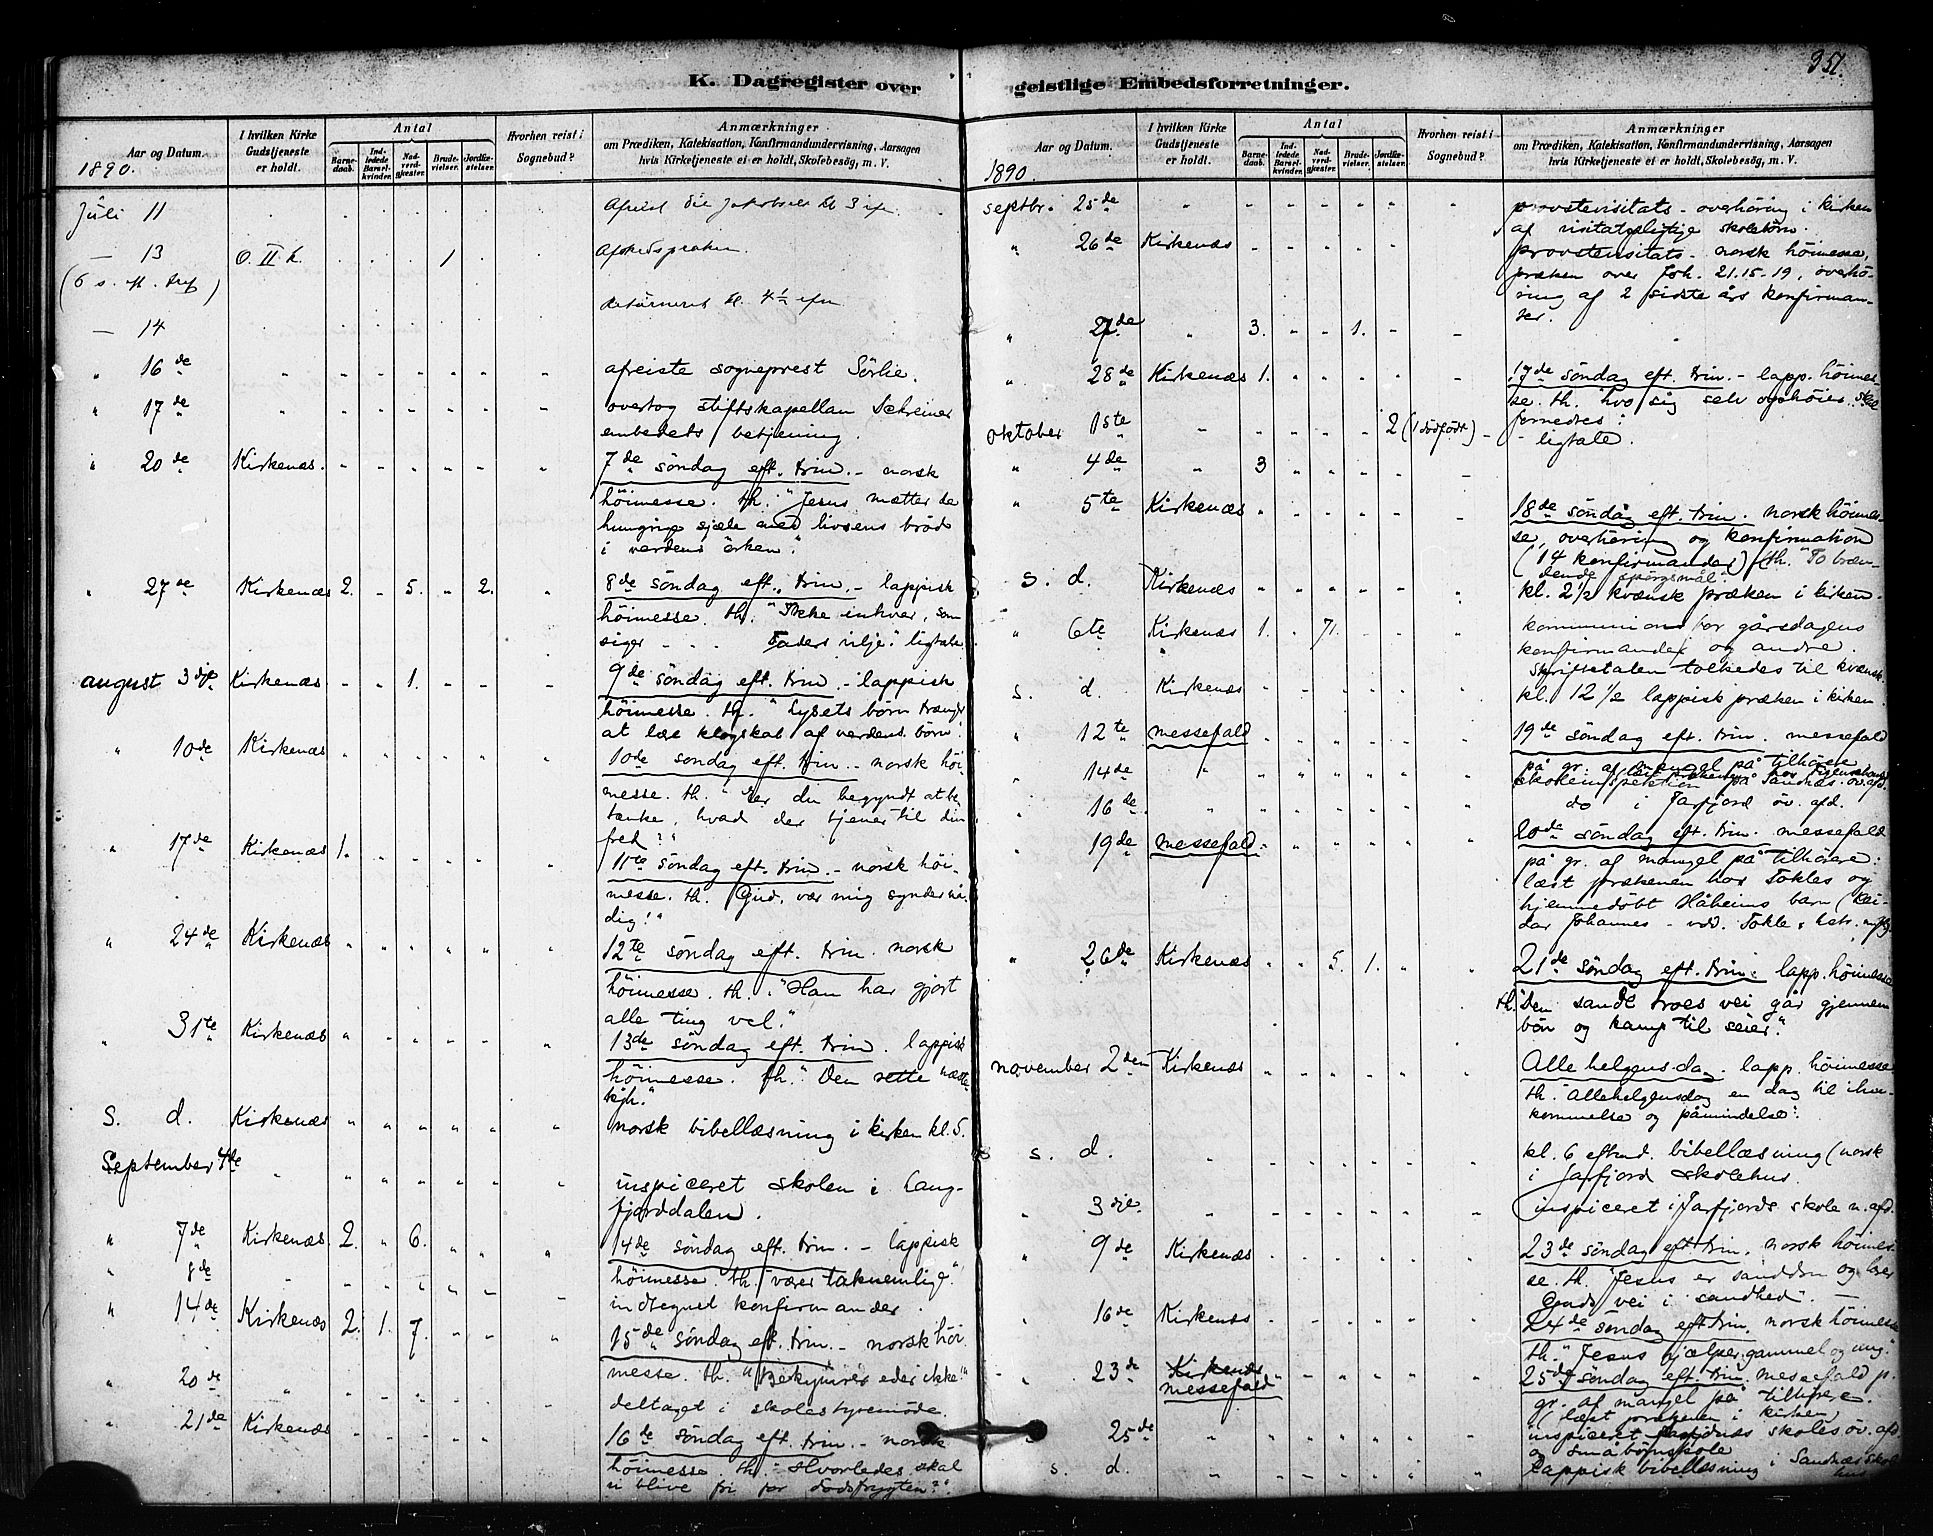 351.
K. Dagregister over geistlige Embedsforretninger.
Aar og Datum.
I hvilken Kirke Gudstjeneste er holdt.
Antal
Barnedaab.
Indledede Barselkvinder.
Nadverdgjester.
Brudevielser.
Jordfæstelser.
Hvorhen reist i Sognebud?
Anmærkninger
om Prædiken, Katekisation, Konfirmandundervisning, Aarsagen
hvis Kirketjeneste ei er holdt, Skolebesög, m. V.
1890.
Juli 11
— 13 O. II k. 1
(6 s. ef. tref)
returneret kl. 4½ efm
— 14
" 16de afreiste sogneprest Sörlie.
" 17de overtog stiftskapellan Schreiner
embedets betjening.
" 20de Kirkenæs. 7de söndag eft. trin. - norsk
höimesse. th. "Jesus mætter de
hungrige sjæle med livsens bröd
i verdens örken."
" 27de Kirkenæs 2. 5. 2. 8de söndag eft. trin. - lappisk
höimesse. th. "Ikke enhver, som
siger - - - Faders vilje." ligtale
august 3dje Kirkenæs 1. 9de söndag eft. trin. - lappisk
höimesse. th. "Lysets börn trænger
at lære klogskab af verdens börn."
" 10de Kirkenæs 10de söndag eft. trin. - norsk höi-
messe. th. "Er du begyndt at be-
tænke, hvad der tjener til din
fred?"
" 17de Kirkenæs 1. 11te söndag eft. trin. - norsk höi-
messe. th. "Gud, vær mig synder nå-
dig!"
" 24de Kirkenæs 12te söndag eft. trin. norsk
höimesse. th. "Han har gjort
alle ting vel."
" 31te Kirkenæs 13de söndag eft. trin. lappisk
höimesse. th. "Den rette næste-
kjh."
s. d. Kirkenæs norsk bibellæsning i kirken kl. 5.
September 4de inspiceret skolen i Lang-
fjorddalen.
" 7de Kirkenæs 2. 6. 14de söndag eft. trin. - lappisk
höimesse. th. "værer taknemlige."
" 8de indtegned konfirmander.
" 14de Kirkenæs 2. 1. 7. 15de söndag eft. trin. - norsk höi-
messe. th. "Bekymrer eder ikke!"
" 20de deltaget i skolestyremöde.
" 21de Kirkenæs 16de söndag eft. trin. - norsk
höimesse th. "Hvorledes skal
vi blive fri for dödsfrygten?"
Aar og Datum.
I hvilken Kirke Gudstjeneste er holdt.
Antal
Barnedaab.
Indledede Barselkvinder.
Nadverdgjester.
Brudevielser.
Jordfæstelser.
Hvorhen reist i Sognebud?
Anmærkninger
om Prædiken, Katekisation, Konfirmandundervisning, Aarsagen
hvis Kirketjeneste ei er holdt, Skolebesög, m. V.
1890.
septbr. 25de provstevisitats - overhöring i kirken
af visitatspligtige skolebörn.
" 26de Kirkenæs provstevisitats - norsk höimesse,
præken over Joh. 21.15-19, overhö-
ring af 2 sidste års konfirman-
der.
" 27de 3. 1.
" 28de Kirkenæs 1. 17de söndag eft. trin. - lapp. höimes-
se. th. "hvo sig selv ophöier skal
fornedres."
oktober 1ste 2 (1 dödfödt) - ligtale.
" 4de 3
" 5te Kirkenæs 18de söndag eft. trin. norsk höimes-
se, overhöring og konfirmation
(14 konfirmander) th. "To bræn-
dende spörgsmål."
s. d. Kirkenæs kl. 2½ kvænsk præken i kirken.
" 6te Kirkenæs 1. 71. kommunion for gårsdagens
konfirmander og andre.
Skriftetalen tolkedes til kvænsk.
s. d. Kirkenæs kl. 12½ lappisk præken i kirken.
" 12te messefald 19de söndag eft. trin. messefald
på gr. af mangel på tilhörere
" 14de skoleinspektion på Sandnæs öv. afd.
" 16de do i Jarfjord öv. afd.
" 19de messefald 20de söndag eft. trin. messefald
på gr. af mangel på tilhörere:
læst prækenen hos Tokles og
hjemmedöbt Håheims barn
" 26de Kirkenæs 5. 1. 21de söndag eft. trin. lapp. höimesse
th. "Den sande troes vei går gjennem
bön og kamp til seier."
november 2den Kirkenæs Alle helgensdag. lapp. höimesse
th. "Allehelgensdag en dag til ihu-
kommelse og påmindelse".
s. d. kl. 6 efterm. bibellæsning (norsk
i Jarfjord skolehus.
" 3dje. inspiceret i Jarfjords skole n. afd.
" 9de Kirkenæs 23de söndag eft. trin. norsk höimes-
se. th. "Jesus er sanddru og lærer
Guds vei i sandhed". -
" 16de Kirkenæs 24de söndag eft. trin. norsk höimesse
th. "Jesus hjælper gammel og ung."
" 23de Kirkenæs
messefald 25de söndag eft. trin. messefald p.
gr. af mangel på tilhörere.
(læst prækenen i kirken
" 25de inspiceret Sandnæs skoles öv. afd.
og småbörnskole
s. d. lappisk bibellæsning i Sandnæs skole-
hus